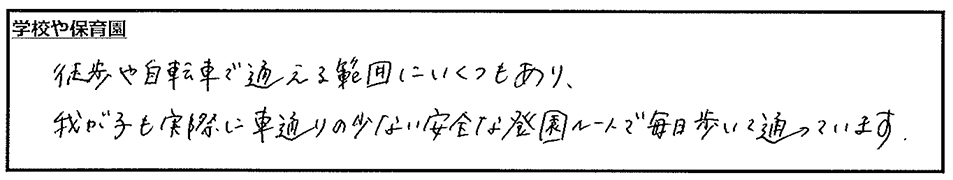 学校や保育園
徒歩や自転車で通える範囲にいくつもあり、
我が子も実際に車通りの少ない安全な登園ルートで毎日歩いて通っています.